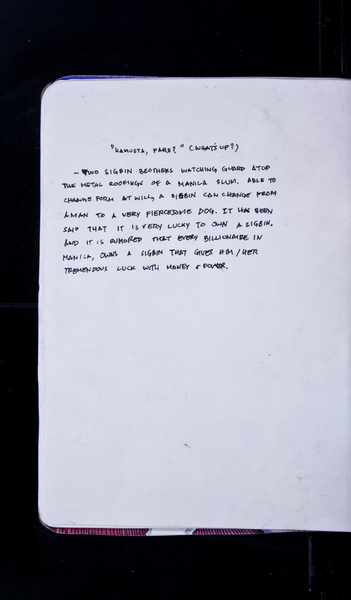 "KAMUSTA, PARE?" (WHAT'S UP?)
- TWO SIGBIN BROTHERS WATCHING GUARD ATOP
THE METAL ROOFINGS OF A MANILA SLUM. ABLE TO
CHANGE FORM AT WILL, A SIGBIN CAN CHANGE FROM
A MAN TO A VERY FIERCESOME DOG. IT HAS BEEN
SAID THAT IT IS VERY LUCKY TO OWN A SIGBIN.
AND IT IS RUMORED THAT EVERY BILLIONAIRE IN
MANILA, OWNS A SIGBIN THAT GIVES HIM/HER
TREMENDOUS LUCK WITH MONEY & POWER.